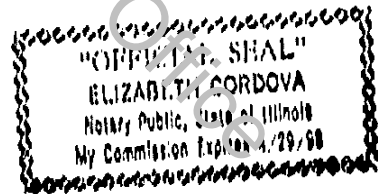 "OFFICIAL SEAL"
ELIZABETH CORDOVA
Notary Public, State of Illinois
My Commission Expires 4/29/98
Office